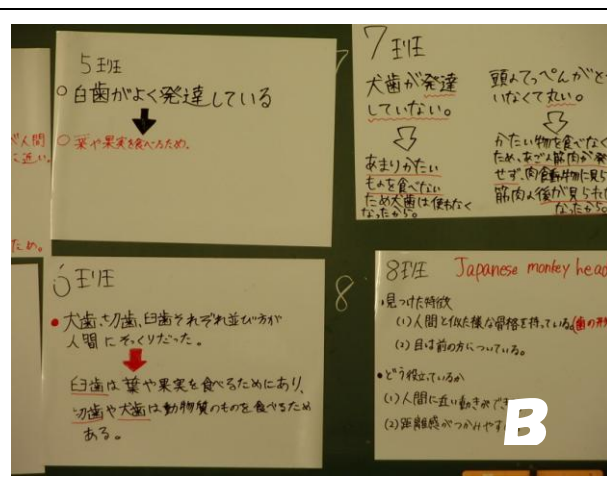 人間
に近い。
ため。
5班
○白歯がよく発達している
○葉や果実を食べるため。
7
7班
犬歯が発達
していない。
あまりかたい
ものを食べない
ため犬歯は使わなく
なったから。
頭のてっぺんがと
いなくて丸い。
かたい物を食べなく
ため、あごの筋肉が発
せず、肉食動物に見ら
筋肉の後が見られ
なったから。
6班
●犬歯、切歯、臼歯それぞれ並び方が
人間にそっくりだった。
臼歯は葉や果実を食べるためにあり、
切歯や犬歯は動物質のものを食べるため
ある。
8
8班 Japanese monkey head
・見つけた特徴
(1)人間と似た様な骨格を持っている。(歯の形
(2)目は前の方についている。
・どう役立っているか
(1)人間に近い動きができ
(2)距離感がつかみやす
B